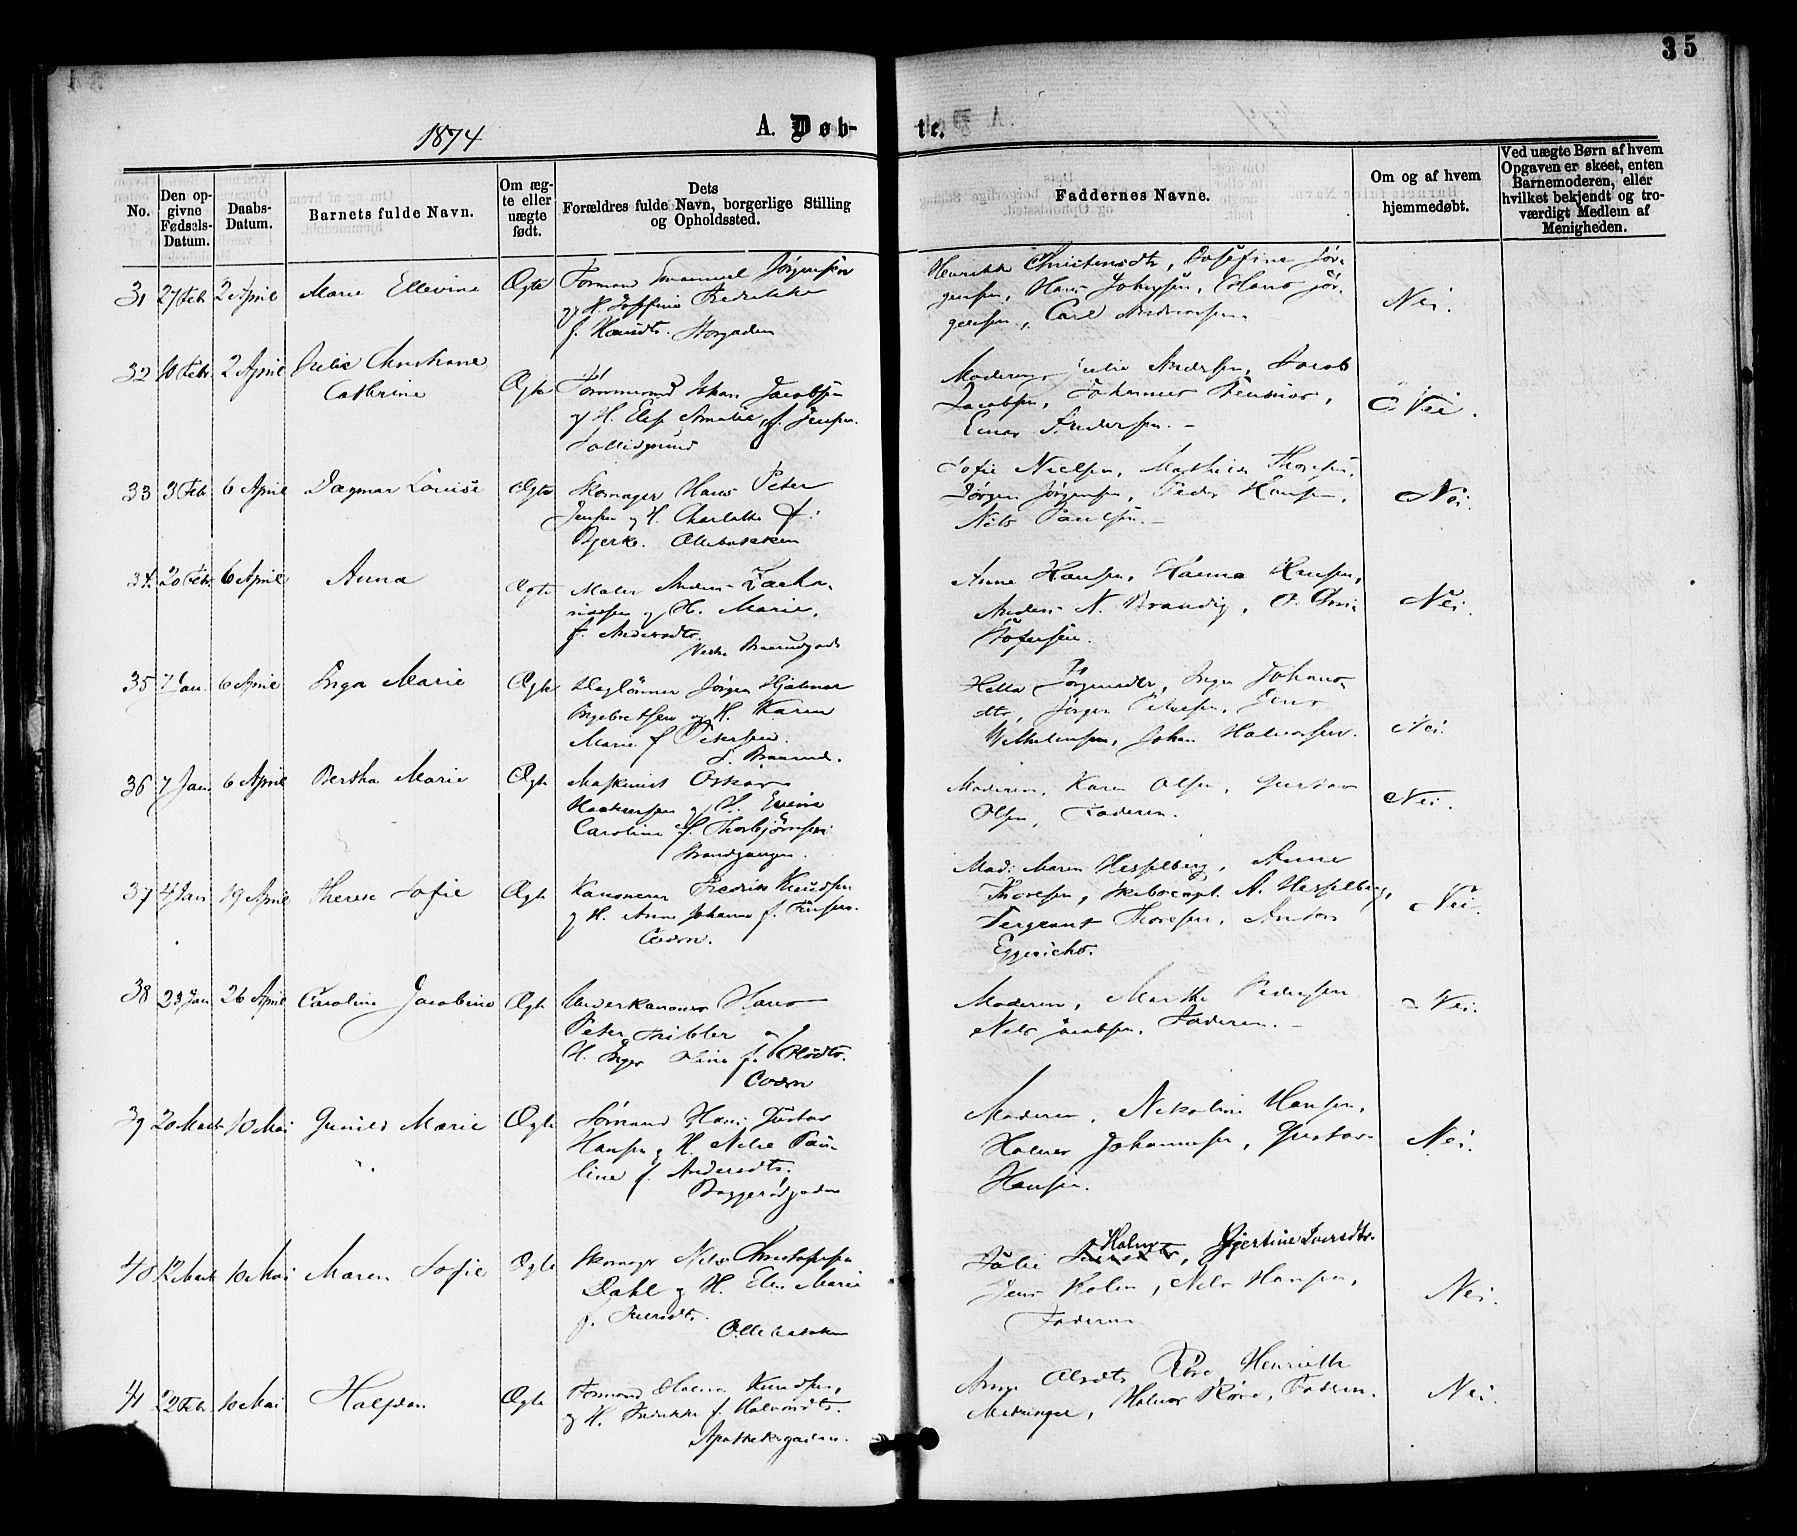 35
1874
A. Døb-
te.
No.
Den op-
givne
Fødsels-
Datum.
Daabs-
Datum.
Barnets fulde Navn.
Om æg-
te eller
uægte
født.
Dets
Forældres fulde Navn, borgerlige Stilling
og Opholdssted.
Faddernes Navne.
Om og af hvem
hjemmedøbt.
Ved uægte Børn af hvem
Opgaven er skeet, enten
Barnemoderen, eller
hvilket bekjendt og tro-
værdigt Medlem af
Menigheden.
31 27 Feb. 2 April Marie Ellevine Ægte
Tømmand Emanuel Jørgensen
og H. Josefine Fredrikke
f. Storgaden
Henrikke Christensdtr, Josefine Jør-
gensen, Hans Johnsen, Hans Jør-
gensen, Carl Andersen.
Nei.
32 10 Febr. 2 April Julie Christiane
Cathrine
Ægte
Tømmermd Johan Jacobsen
og H. Elise Amalie f. Jensen.
Tollidgrund
Moderen, Julie Andersen, Jacob
Jacobsen, Johannes
Einar Andersen.
Nei.
33 3 Feb. 6 April Dagmar Louise Ægte
Skomager Hans Peter
Jensen og H. Charlotte f.
Bjerke. Ollebakken
Sofie Nielsen, Mathilde Thoresen,
Jørgen Jørgensen, Peder Hansen,
Nils Paulsen.
Nei.
34. 20 Feb. 6 April Anna Ægte
Maler Anders Zacha-
riassen og H. Marie,
f. Andersdtr.
Vestre Braarudgade
Anne Hansen, Hanna Hansen,
Anders N. Brandig, O. Chri-
stofersen.
Nei.
35 7 Jan. 6 April Inga Marie Ægte
Daglønner Jørgen Hjalmar
Ingebretsen og H. Karen
Marie f Petersen.
Braarud.
Helle Jørgensdtr, Inga Johans-
dtr, Jørgen Petersen, Jens
Wilhelmsen, Johan Halvorsen.
Nei.
36 7 Jan 6 April Bertha Marie Ægte
Maskinist Oskar
Haakensen og H. Evine
Caroline f. Thorbjørnsen
Brandgangen.
Moderen, Karen Olsen, Gustav
Olsen, Faderen.
Nei.
37 4 Jan 19 April Therese Sofie Ægte
Kanoneer Fredrik Knudsen
og H. Anne Johanne f.
Cadrn.
Mad. Maren Hesselberg, Anne
Thoresen, Skibscapt. A. Hesselberg,
Sergeant Thoresen, Anton
Eggerichs.
Nei.
38 23 Jan 26 April Caroline Jacobine Ægte
Underkanoner Hans
Peter Tribler og
H. Inger Oline f.
Moderen, Marthe Pedersen
Nils Jacobsen, Faderen.
Nei.
39 20 Marts 10 Mai Gunild Marie Ægte
Sømand Hans Gustav
Hansen og H. Nilie Pau-
line f. Andersdtr.
Baggerødgaden
Moderen, Nikoline Hansen,
Halvor Johannesen, Gustav
Hansen.
Nei.
40 12 Marts 10 Mai Maren Sofie Ægte
Skomager Nils Christofersen
Dahl og H. Elen Marie
f. Iversdtr.
Ollebakken
Julie Holm, Gjertine Iversdtr.
Jens Holm, Nils Hansen,
Faderen
Nei.
41 22 Febr. 10 Mai Halfdan Ægte
Tømmand Halvor Knudsen,
og H. Fredrikke f. Halvorsdtr.
Apothekergaden.
Anne Olsdtr Røre, Henriette
Metzinger, Halvor Røre, Faderen.
Nei.